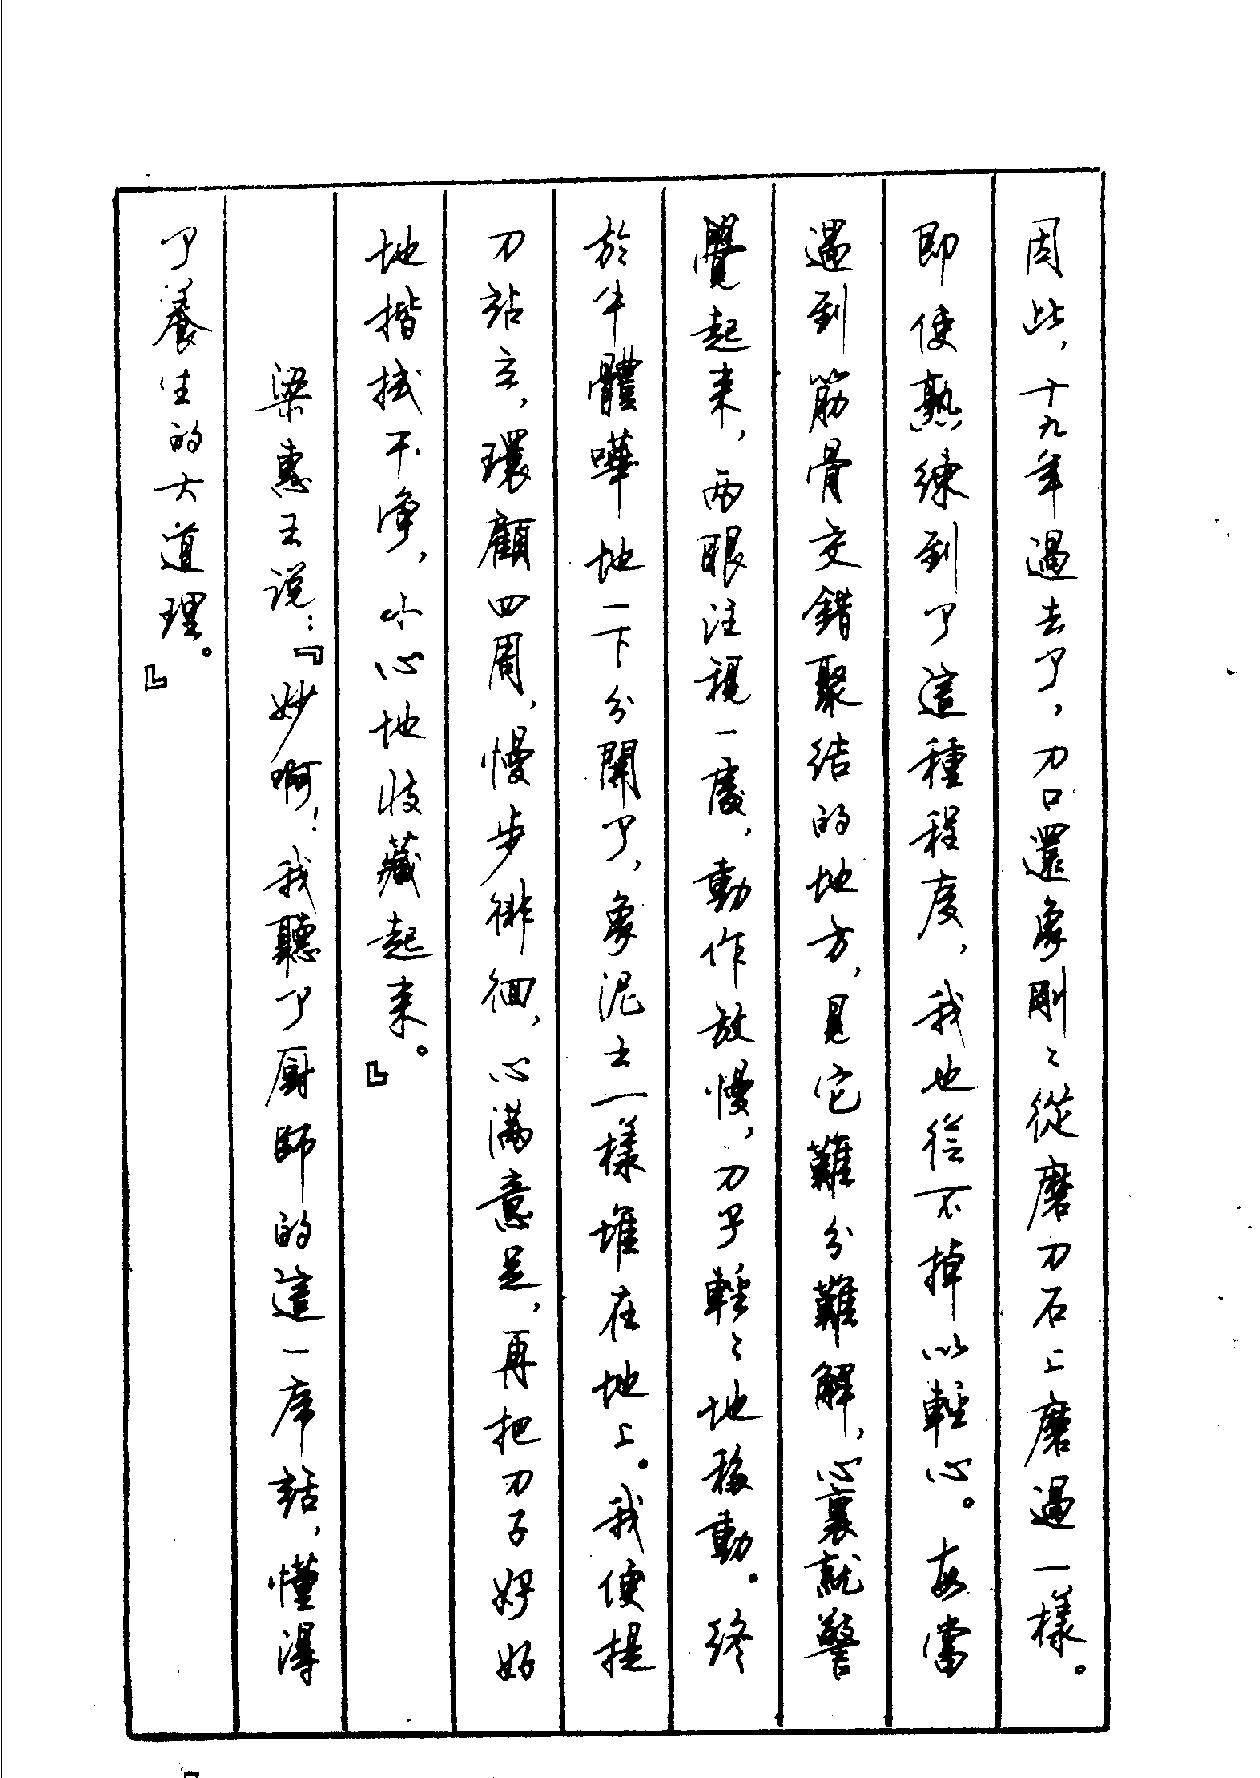 因此，十九年過去了，刀口還象剛〻從磨刀石上磨過一樣。
即使熟練到了這種程度，我也從不掉以輕心。每當
遇到筋骨交錯聚結的地方，見它難分難解，心裏就警
覺起來，两眼注視一處，動作放慢，刀子輕〻地移動。終
於牛體嘩地一下分開了，象泥土一樣堆在地上。我便提
刀站立，環顧四周，慢步徘徊，心滿意足，再把刀子好好
地揩拭干净，小心地收藏起来。』
梁惠王说：『妙啊！我聽了厨師的這一席話，懂得
了養生的大道理。』